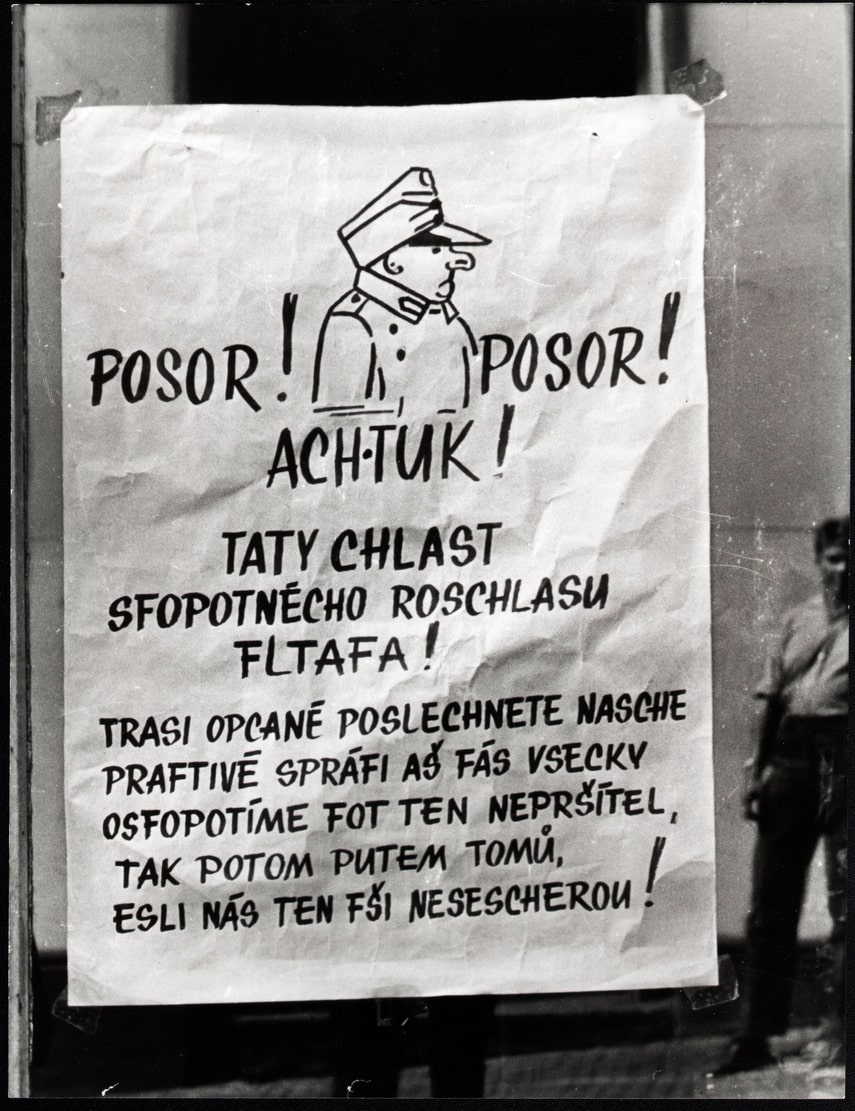 POSOR! POSOR!
ACH-TUK!
TATY CHLAST
SFOPOTNÉCHO ROSCHLASU
FLTAFA!
TRASI OPCANÉ POSLECHNETE NASCHE
PRAFTIVÉ SPRÁFI AŠ FÁS VSECKY
OSFOPOTÍME FOT TEN NEPRŠÍTEL,
TAK POTOM PUTEM TOMŮ,
ESLI NÁS TEN FŠI NESESCHEROU!